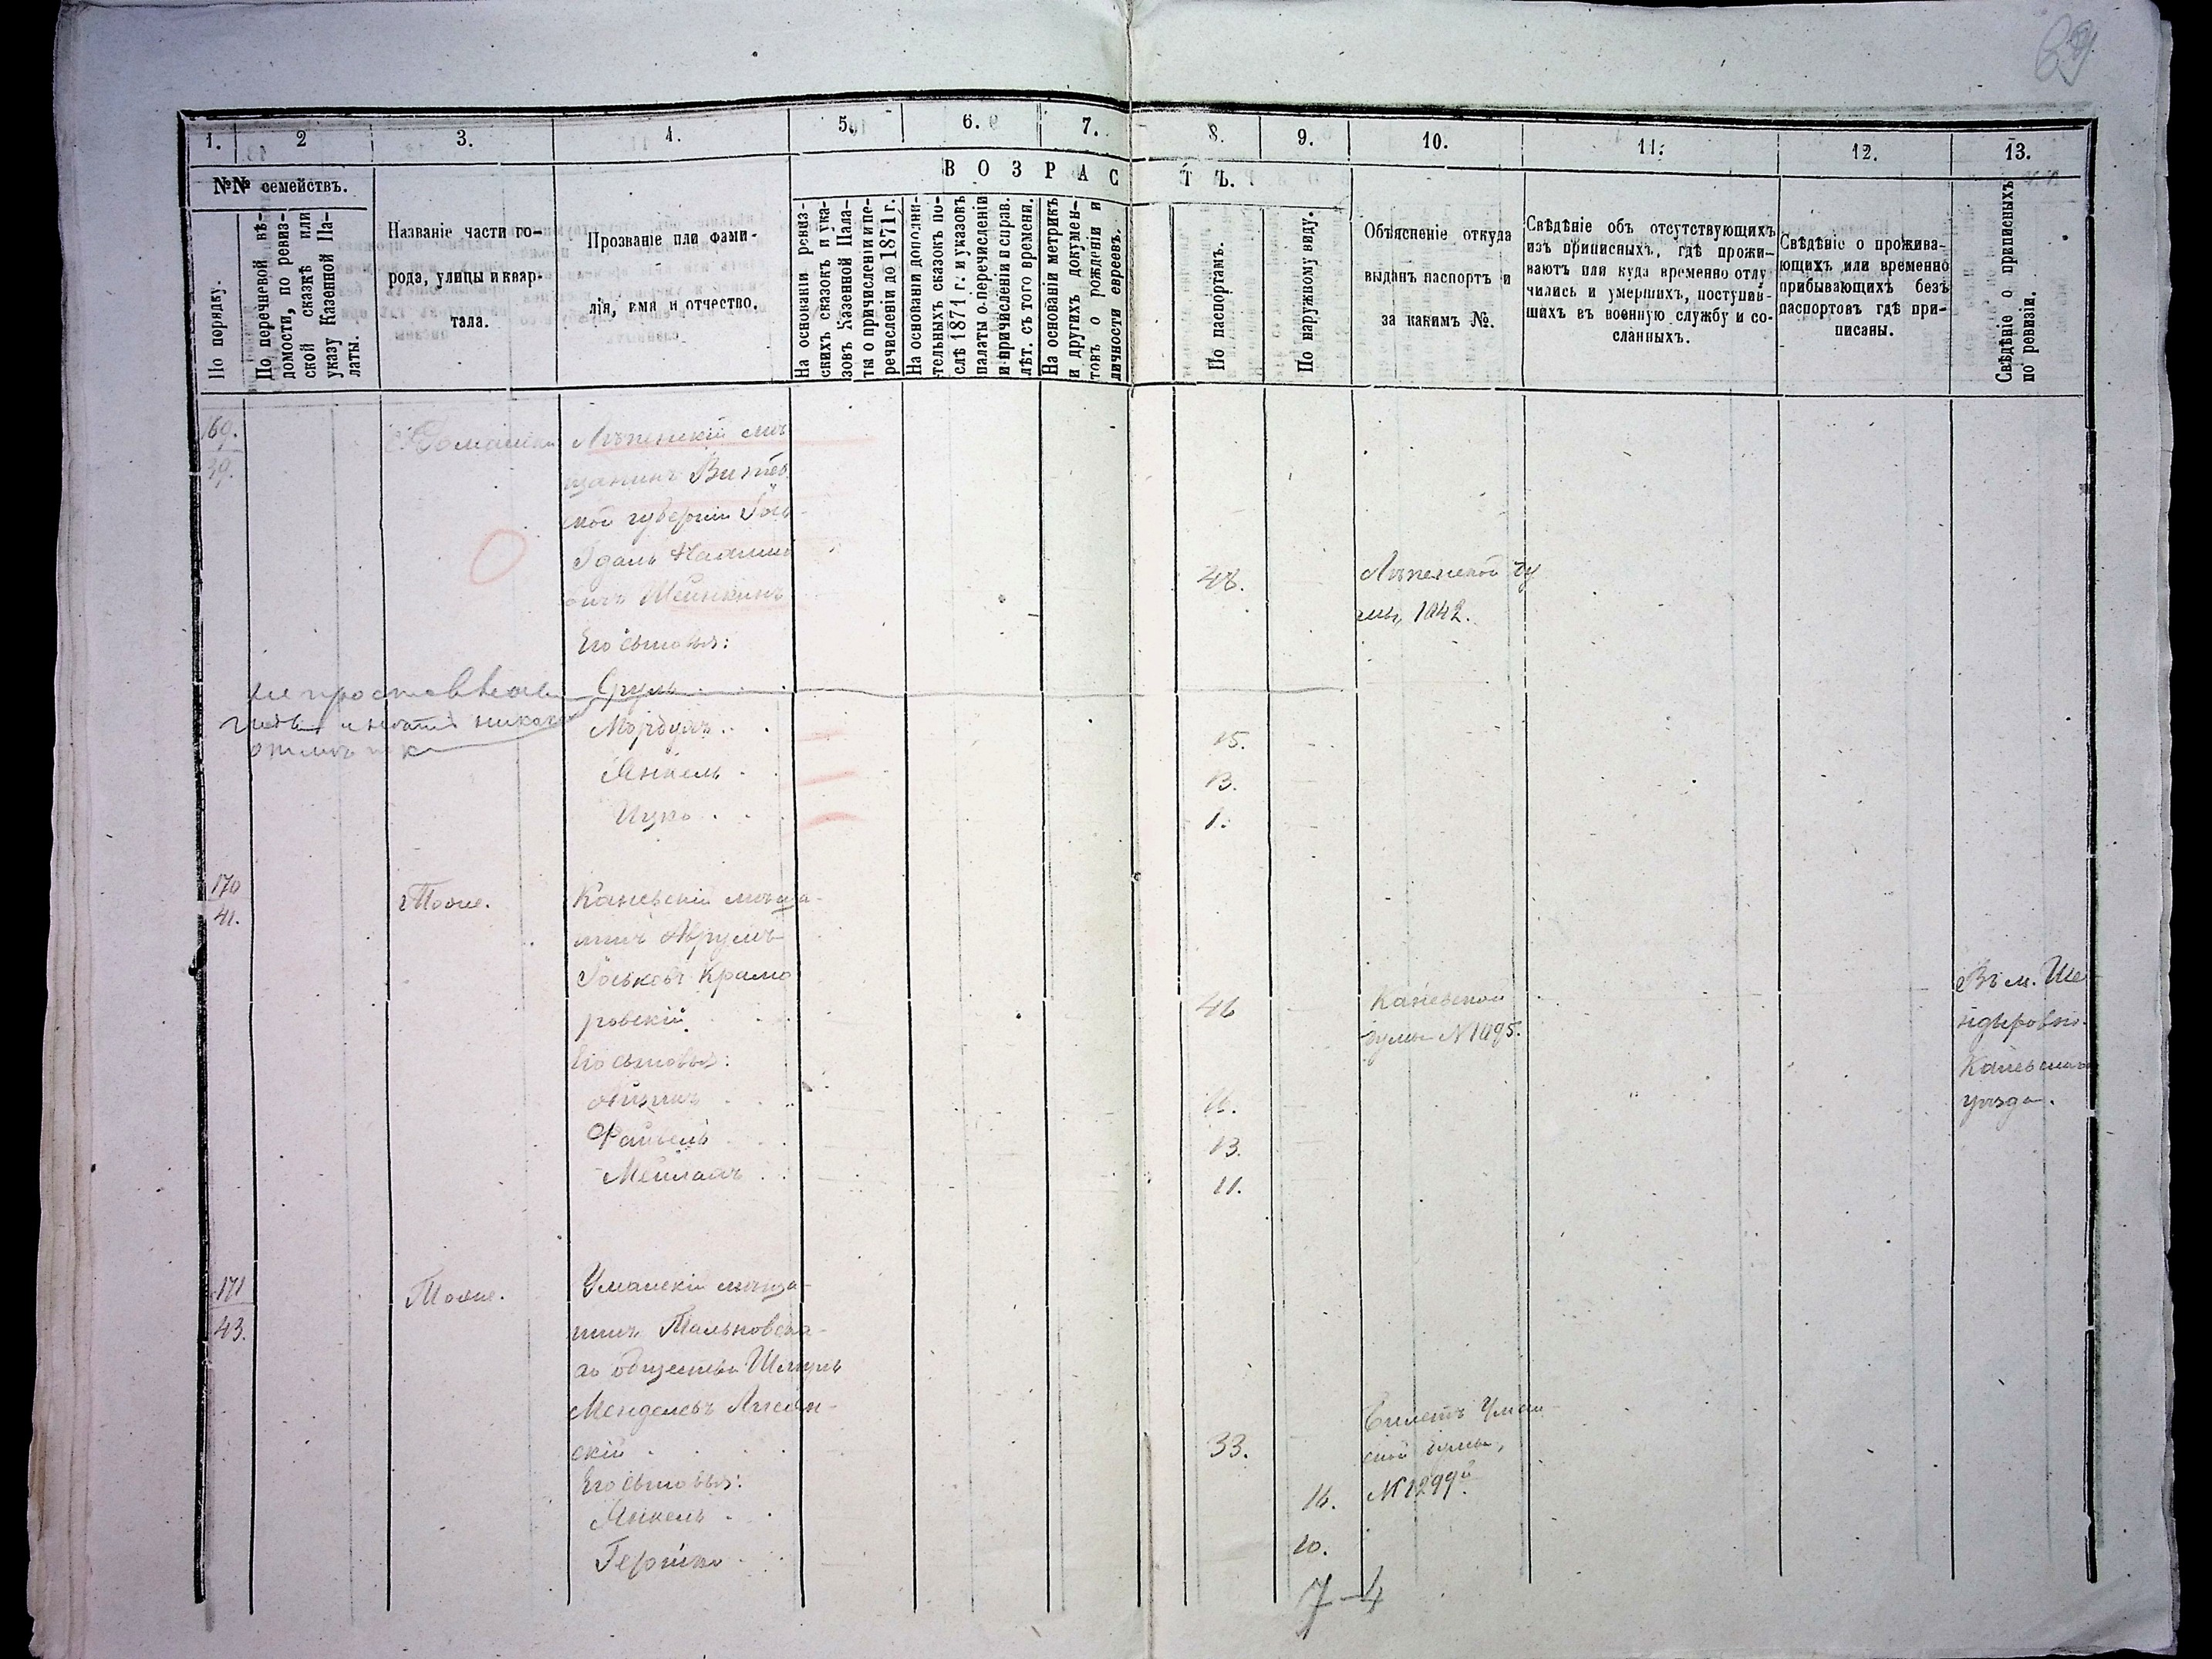 69
1. 2 3. 4. 5. 6. 7. 8. 9. 10. 11. 12. 13.
№№ семействъ.
В О З Р А С Т Ъ.
По порядку.
По перечневой вѣ-
домости, по ревиз-
ской сказкѣ или
указу Казенной Па-
латы.
Названіе части го-
рода, улицы и квар-
тала.
Прозваніе или фами-
лія, имя и отчество.
На основаніи ревиз-
скихъ сказокъ и ука-
зовъ Казенной Пала-
ты о причисленіи и пе-
речисленіи до 1871 г.
На основаніи дополни-
тельныхъ сказокъ по-
слѣ 1871 г. и указовъ
палаты о перечисленіи
и причисленіи справ.
лѣт. съ того времени.
На основаніи метрикъ
и другихъ докумен-
товъ о рожденіи и
личности евреевъ.
По паспортамъ.
По наружному виду.
Объясненіе откуда
выданъ паспортъ и
за какимъ №.
Свѣдѣніе объ отсутствующихъ
изъ приписныхъ, гдѣ прожи-
ваютъ или куда временно отлу
чились и умершихъ, поступив-
шихъ въ военную службу и со-
сланныхъ.
Свѣдѣніе о прожива-
ющихъ или временно
прибывающихъ безъ
паспортовъ гдѣ при-
писаны.
Свѣдѣніе о приписныхъ
по ревизіи.
169.
39.
мѣ
щанинъ Витеб
ской губерніи
Шейнкинъ 48. ду
мы, 1842.
Его сыновья:
Сруль
Мордухъ 15.
Янкель 13.
Ицко 1.
170
41.
Тоже.
Каневскій мѣща-
нинъ Аврумъ
Іоськовъ Крамо
ровскій 46 Каневской
думы № 1095.
Въ м. Ше
ндеровкѣ
Каневскаго
уѣзда.
Его сыновья:
16.
Файвель 13.
Мейлахъ 11.
171
43.
Тоже.
Уманскій мѣща-
нинъ Тальновска-
го общества Шмуль
Менделевъ Лисян-
скій 33. Билетъ Уман
ской думы,
№ 1299й
Его сыновья:
Янкель 16.
Гершко 10.
7-4